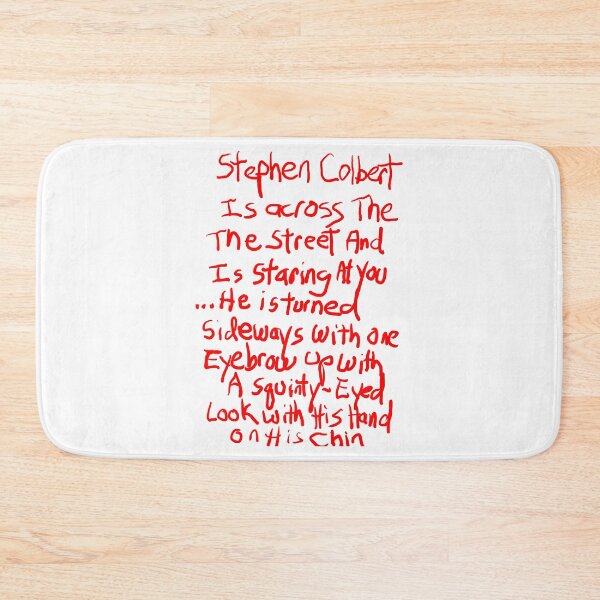 Stephen Colbert
Is across The
The Street And
Is Staring At You
...He is turned
Sideways with one
Eyebrow up with
A Squinty-Eyed
Look with His Hand
on His Chin